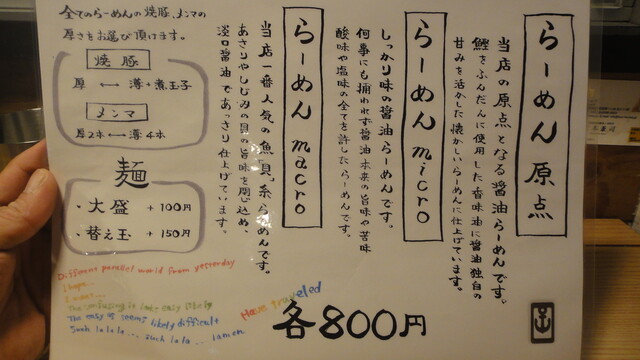 らーめん 原点
当店の原点となる醤油らーめんです。
鰹をふんだんに使用した香味油に醤油独自の
甘みを活かした懐かしいらーめんに仕上げています。
らーめん micro
しっかり味の醤油らーめんです。
何事にも捕われず醤油本来の旨味や苦味
酸味や塩味の全てを許したらーめんです。
らーめん macro
当店一番人気の魚貝系らーめんです。
あさりやしじみの貝の旨味を閉じ込め、
淡口醤油であっさり仕上げています。
全てのらーめんの焼豚、メンマの
厚さをお選び頂けます。
焼豚
厚 ←→ 薄+煮玉子
メンマ
厚2本 ←→ 薄4本
麺
・大盛 +100円
・替え玉 +150円
Different parallel world from yesterday
I hope...
I want...
The confusing it
easy likely
The easy it seems likely difficult
Such la la la... such la la... lamen
Have traveled
各800円